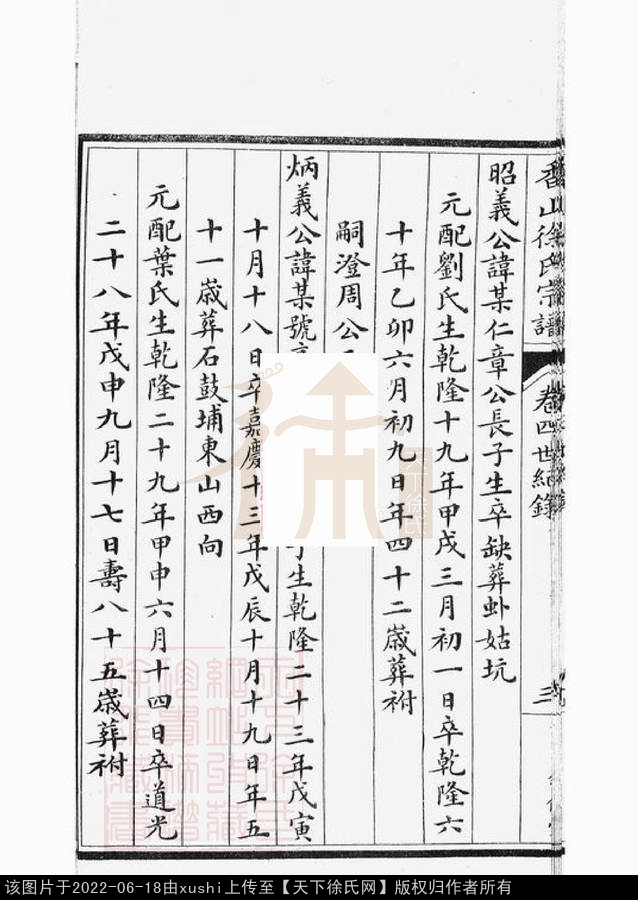 香山徐氏宗譜
卷四世紀錄
三
昭義公諱某仁章公長子生卒缺葬虷姑坑
元配劉氏生乾隆十九年甲戌三月初一日卒乾隆六
十年乙卯六月初九日年四十二歲葬祔
嗣澄周公
炳義公諱某號
子生乾隆二十三年戊寅
十月十八日卒嘉慶十三年戊辰十月十九日年五
十一歲葬石鼓埔東山西向
元配葉氏生乾隆二十九年甲申六月十四日卒道光
二十八年戊申九月十七日壽八十五歲葬祔
该图片于2022-06-18由xushi上传至【天下徐氏网】版权归作者所有